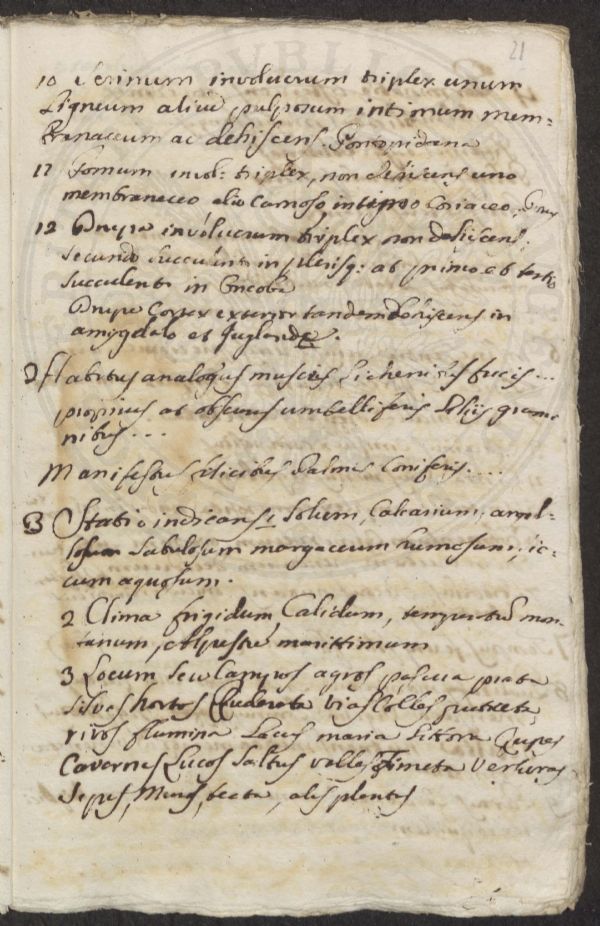 21
10 involucrum triplex unum
Ligneum aliud pulposum intimum mem-
branaceum ac dehiscens.
11 Pomum invol: triplex, non dehiscens uno
membranaceo alio Carnoso, Coriaceo,
12 Drupa involucrum triplex non dehiscens;
secundo succulento in plerisq: at primo et tertio
succulento in
Drupa Cortex exterior tandem dehiscens in
amygdalo et Juglande.
2 Habitus analogus muscis Lichenibus fucis...
propinus at obscurus umbelliferis grami
nibus...
Manifestus filicibus Palmis Coniferis....
3 Statio indicans 1 Solum, Calcarium,
Sabulosum margaceum
cum aquosum.
2 Clima frigidum, Calidum, temperatum mon-
tanum, Alpestre, marittimum
3 Locum seu Campos agros pascua prata
silvas hortos Ruderata vias Colles
rivos flumina Lacus maria Littora Rupes
Cavernas Lucos saltus valles Fimeta
Sepes, Muros, tecta, alis plantis